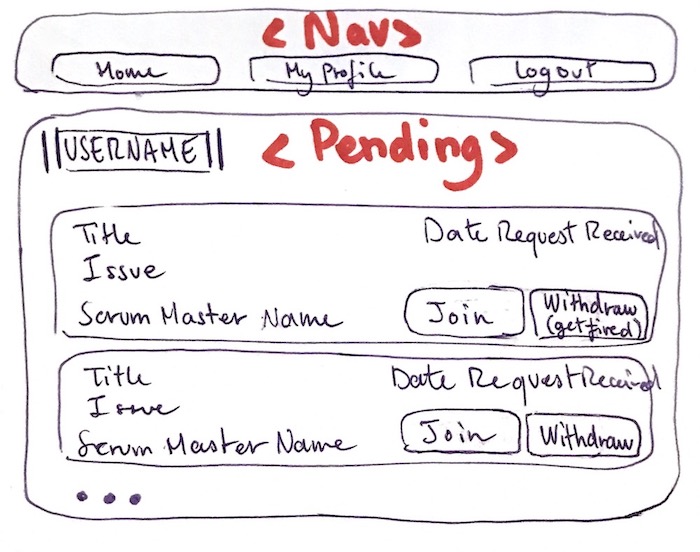 < Nav>
Home My Profile Logout
USERNAME < Pending>
Title Date Request Received
Issue
Scrum Master Name Join Withdraw
(get fired)
Title Date Request Received
Issue
Scrum Master Name Join Withdraw